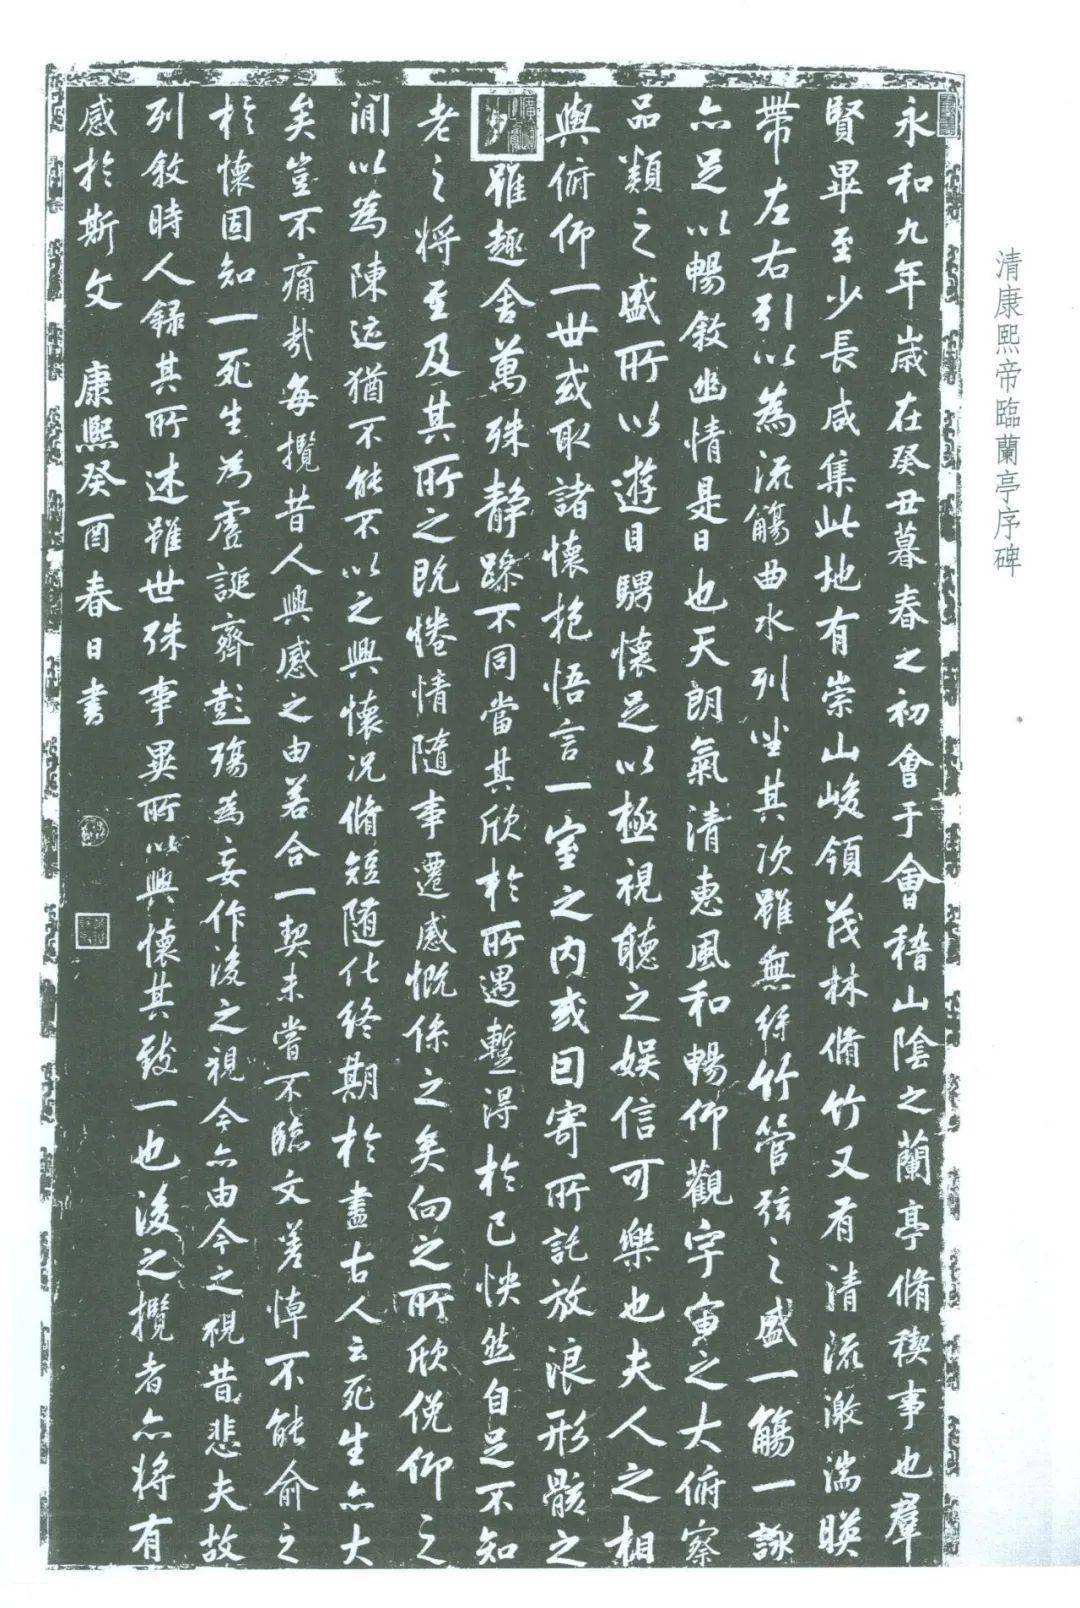 清康熙帝臨蘭亭序碑
永和九年歲在癸丑暮春之初會于會稽山陰之蘭亭脩稧事也羣
賢畢至少長咸集此地有崇山峻領茂林脩竹又有清流激湍暎
帶左右引以為流觴曲水列坐其次雖無絲竹管弦之盛一觴一詠
亦足以暢敘幽情是日也天朗氣清惠風和暢仰觀宇宙之大俯察
品類之盛所以遊目騁懷足以極視聽之娛信可樂也夫人之相
與俯仰一世或取諸懷抱悟言一室之內或因寄所託放浪形骸之
外雖趣舍萬殊靜躁不同當其欣於所遇暫得於己怏然自足不知
老之將至及其所之既惓情隨事遷感慨係之矣向之所欣俛仰之
間以為陳迹猶不能不以之興懷況脩短隨化終期於盡古人云死生亦大
矣豈不痛哉每攬昔人興感之由若合一契未嘗不臨文嗟悼不能喻之
於懷固知一死生為虛誕齊彭殤為妄作後之視今亦由今之視昔悲夫故
列敘時人錄其所述雖世殊事異所以興懷其致一也後之攬者亦將有
感於斯文 康熙癸酉春日書